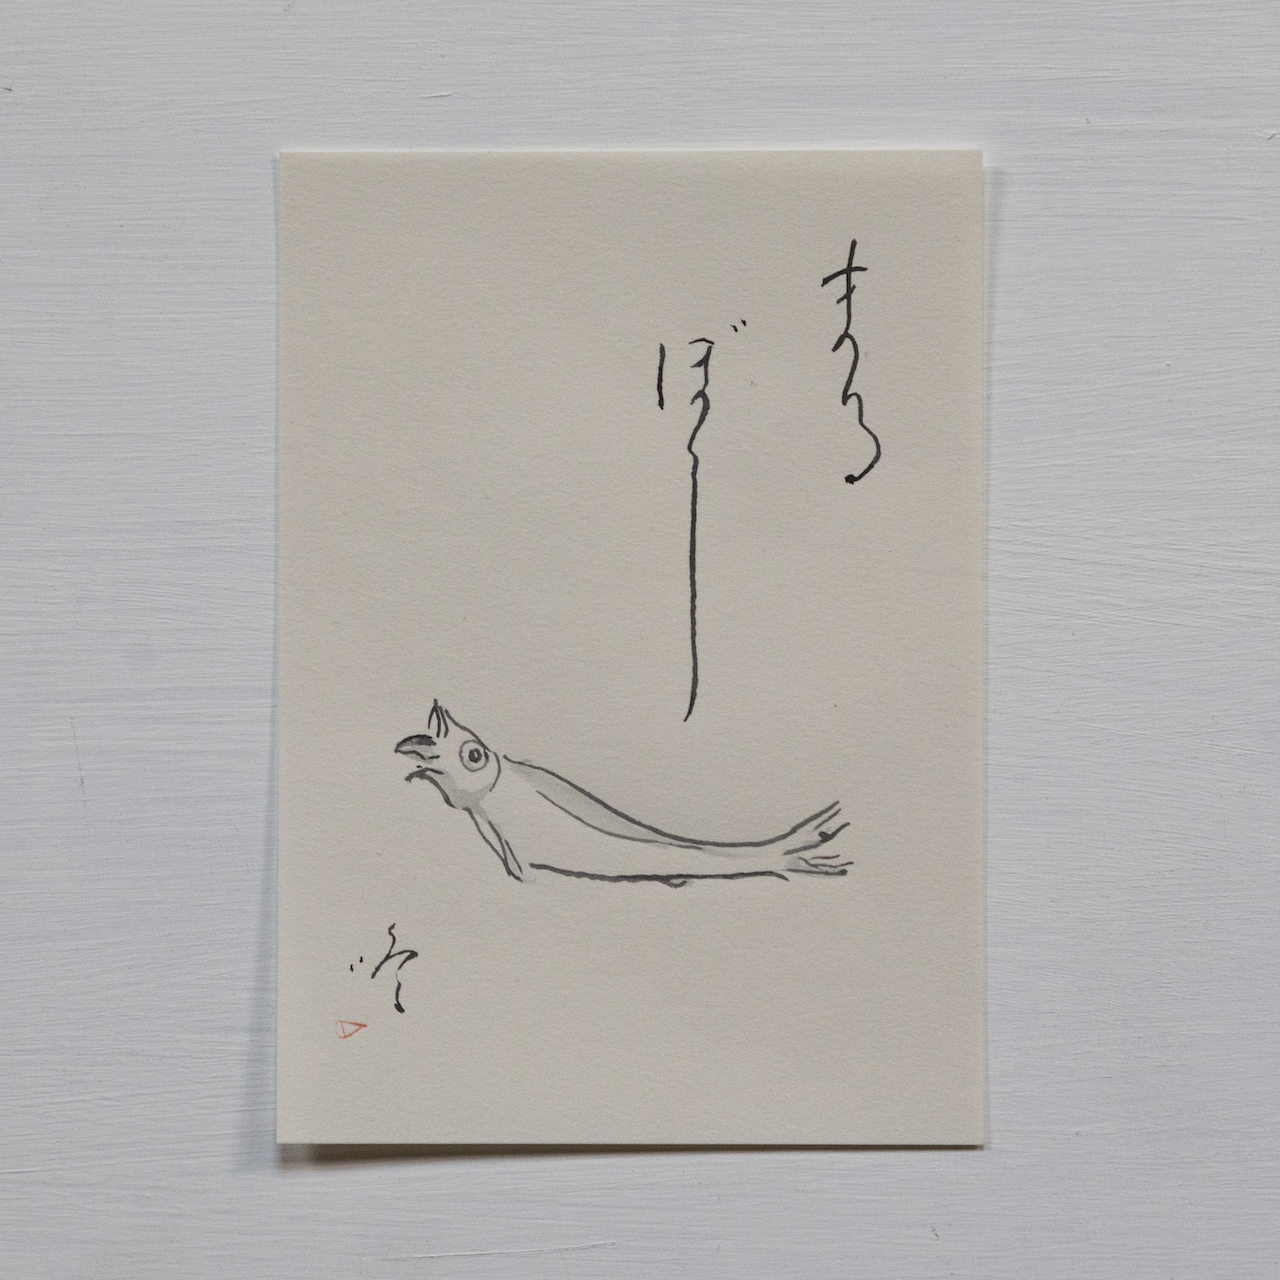 まる
ぼし